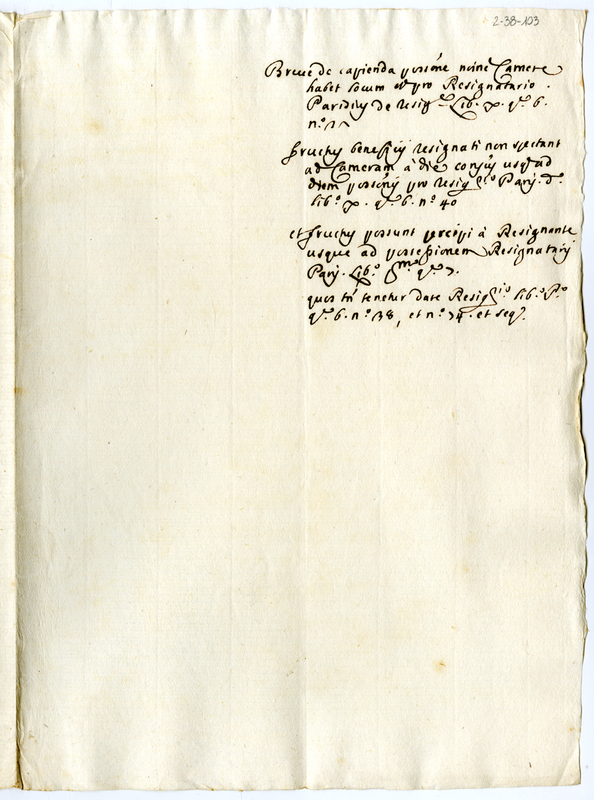 2-38-103
Breve de capienda possōne noīne Camere
habet locum et pro Resignatario.
Parisius de resig.ne Lib. p. q. 6.
n.o
fructus beneficij resignati non spectant
ad Cameram à die consūs usq ad
diem possōnis pro resig.rio Paris. d.
lib.o p. q. 6. n.o 40
et fructus possunt percipi à Resignante
usque ad possessionem Resignatarij
Paris. Lib.o q.
quos tn̄ tenetur dare Resig.rio lib.o P.o
q. 6. n.o 38, et n.o 74. et seq.